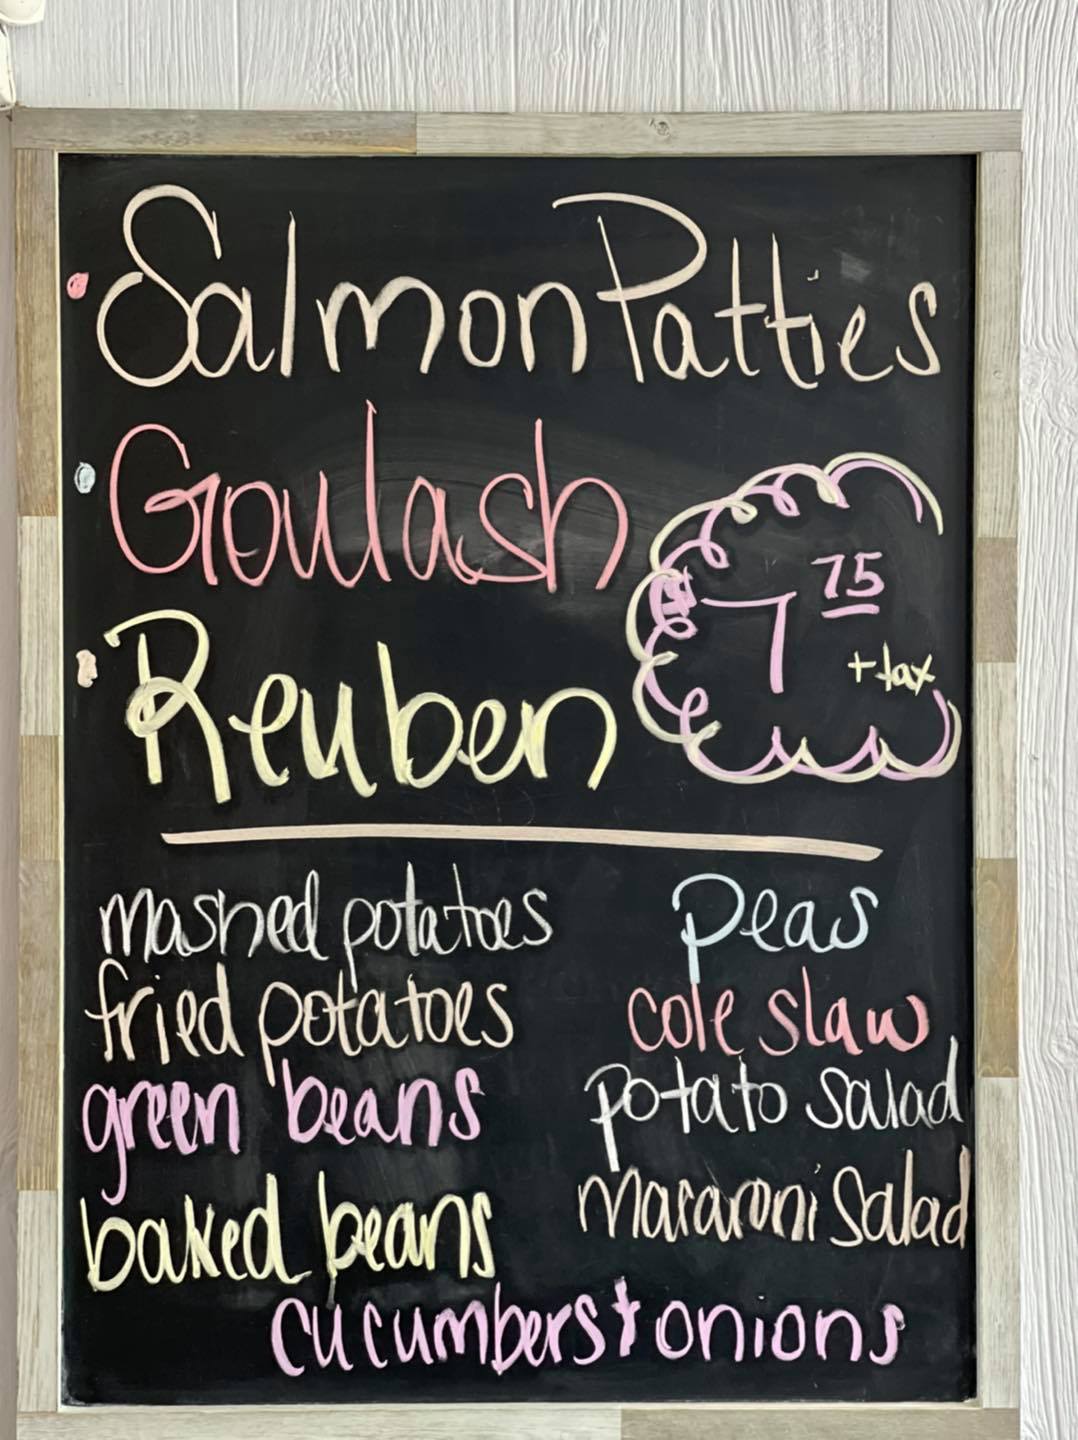 Salmon Patties
Goulash
7 75
+ tax
Reuben
mashed potatoes
fried potatoes
green beans
baked beans
peas
cole slaw
potato salad
macaroni salad
cucumbers + onions